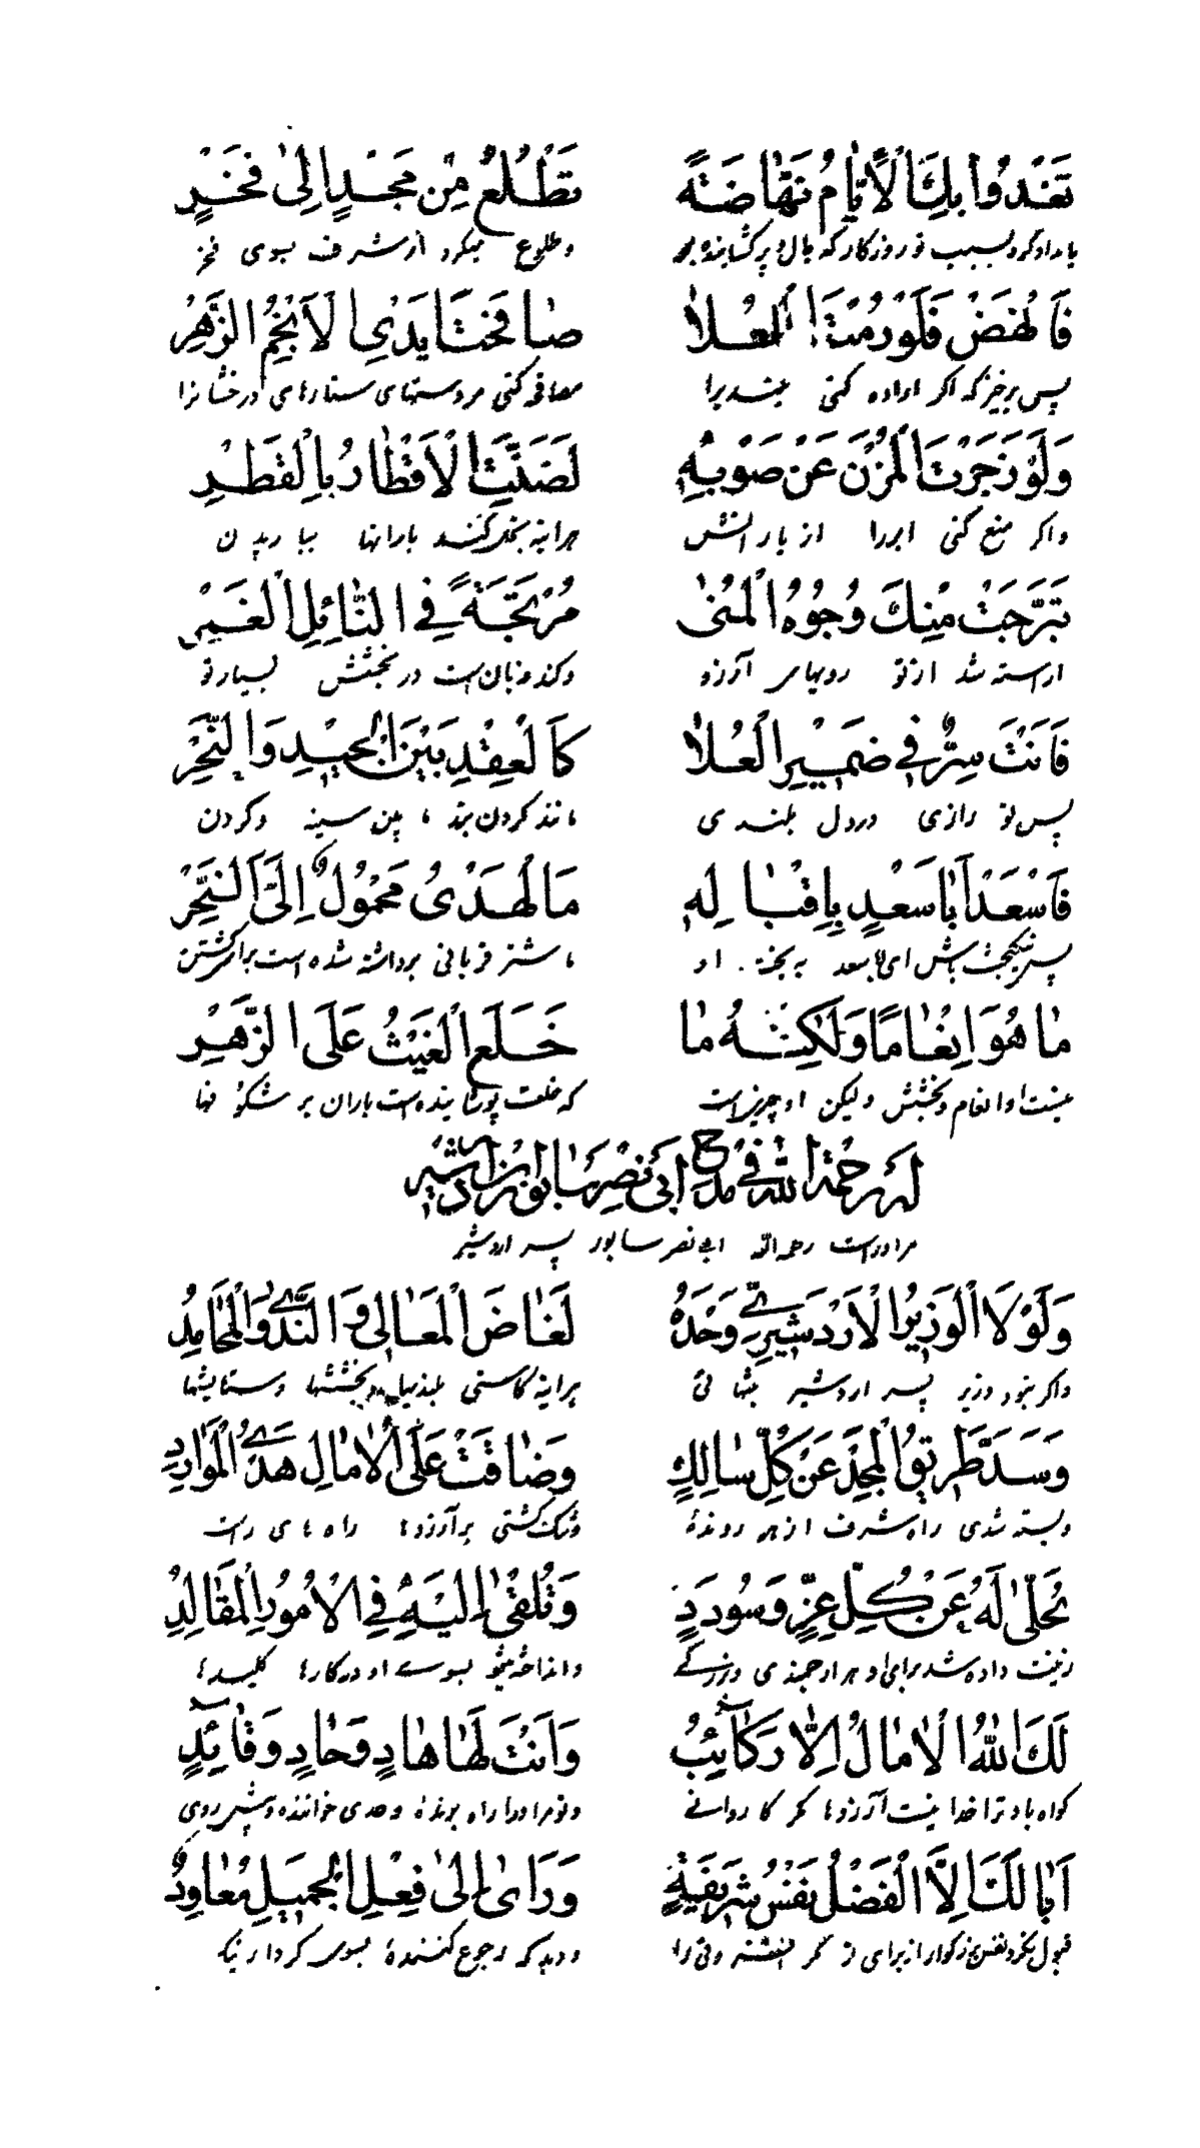 تَغْدُوا بِكَ الْأَيَّامُ نَهَّاضَةً تَطْلُعُ مِنْ مَجْدٍ اِلٰی فَخْرٍ
بامداد کرد بسبب تو روزکار که بال و پر کشاینده و طلوع میکرد از شرف بسوی فخر
فَانْهَضْ فَلَوْ رُمْتَ الْعُلَا صَافَحْتَ اَيْدِی الْاَنْجُمِ الزَّهْرِ
پس برخیز که اکر اراده کنی بلندیرا مصافحه کنی مر دستهای ستارهای درخشانرا
وَلَوْ زَجَرْتَ الْمُزْنَ عَنْ صَوْبِهِ لَضَنَّتِ الْاَقْطَارُ بِالْقَطْرِ
واکر منع کنی ابررا از بارانش هراینه بخل کنند بارانها بباریدن
تَبَرَّجَتْ مِنْكَ وُجُوْهُ الْمُنٰی مُرْتَجَّةً فِی النَّائِلِ الْغَمْرِ
اراسته شد ازتو رویهای آرزو در بخشش بسیار تو
فَاَنْتَ سِرٌّ فِی ضَمِیْرِ الْعُلَا كَالْعِقْدِ بَیْنَ الْجِیْدِ وَالنَّحْرِ
پس تو رازی دردل بلندی مانند کردن بند ما بین سینه وکردن
فَاسْعَدْ اَبَا سَعْدٍ بِاِقْبَالِهِ مَا الْهَدْیُ مَحْمُوْلٌ اِلَی النَّحْرِ
پس نیکبخت باش ای ابا سعد به بخت او ما شتر قربانی برداشته شده است برای کشتن
مَا هُوَ اِنْعَامًا وَلٰكِنَّهُ مَا خَلَعَ الْغَیْثُ عَلَی الزَّهْرِ
نیست او انعام و بخشش ولیکن او چیزیست که خلعت پوشانیده است باران بر شکوفها
لَهُ رَحِمَهُ اللهُ فِی مَدْحِ اَبِی نَصْرِ سَابُوْرَ بْنِ اَرْدَشِیْرِ
مراوراست رحمه الله ابی نصر سابور پسر اردشیر
وَلَوْلَا الْوَزِیْرُ الْاَرْدَشِیْرِیُّ وَحْدَهُ لَغَاضَ الْمَعَالِی وَالنَّدٰی وَالْمَحَامِدُ
واکر نبود وزیر پسر اردشیر بتنهائی هراینه کاستی بلندیها و بخششها وستایشها
وَسَدَّ طَرِیْقُ الْمَجْدِ عَنْ كُلِّ سَالِكٍ وَضَاقَتْ عَلَی الْاٰمَالِ هَذِی الْمَوَارِدِ
وبسته شدی راه شرف از هر روندهٔ وتنک کشتی بر آرزوها راه های راست
تُحَلّٰی لَهُ عَنْ كُلِّ عِزٍّ وَسُودَدٍ وَتُلْقٰی اِلَیْهِ فِی الْاُمُوْرِ الْمَقَالِیْدُ
زینت داده شد برای او هر ارجمندی وبزرکی وانداخته شود بسوی او درکارها کلیدها
لَكَ اللهُ الْاٰمَالُ اِلَّا رَكَائِبُ وَاَنْتَ لَهَا هَادٍ وَحَادٍ وَقَائِدٍ
کواه باد ترا خدا نیست آرزوها مکر کاروانی وتو مر اورا راه برندهٔ وحدی خواننده وپیش روی
اَبَا لَكَ اِلَّا الْفَضْلُ نَفْسٌ شَرِیْفَةٍ وَرَایٌ اِلٰی فِعْلِ الْجَمِیْلِ مُعَاوِدٌ
قبول نکرد نفس بزرکوار از برای تو مکر ودید که رجوع کنندهٔ بسوی کردار نیک